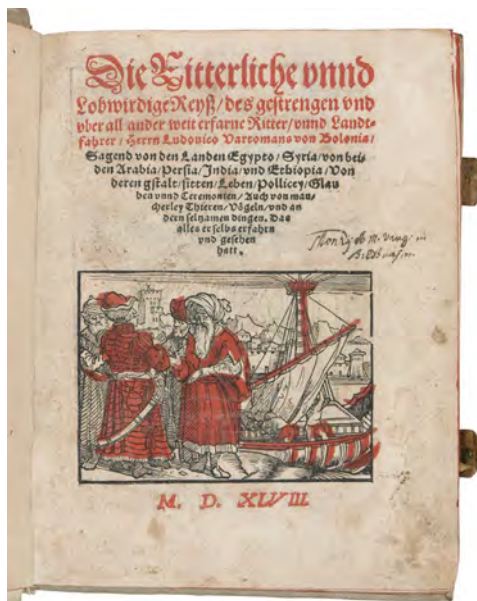 Die Ritterliche vnnd
Lobwirdige Reyß/des gestrengen vnd
vber all ander weit erfarne Ritter/vnnd Landt-
fahrer/Herrn Ludouico Vartomans von Bolonia/
Sagend von den Landen Egypto/Syria/von bei-
den Arabia/Persia/India/vnd Ethiopia/Von
deren gstalt/sitten/Leben/Pollicey/Glau
ben vnnd Ceremonien/Auch von man-
cherley Thieren/Vögeln/vnd an
dern seltzamen dingen. Das
alles er selbs erfahrn
vnd gesehen
hatt.
M. D. XLVIII